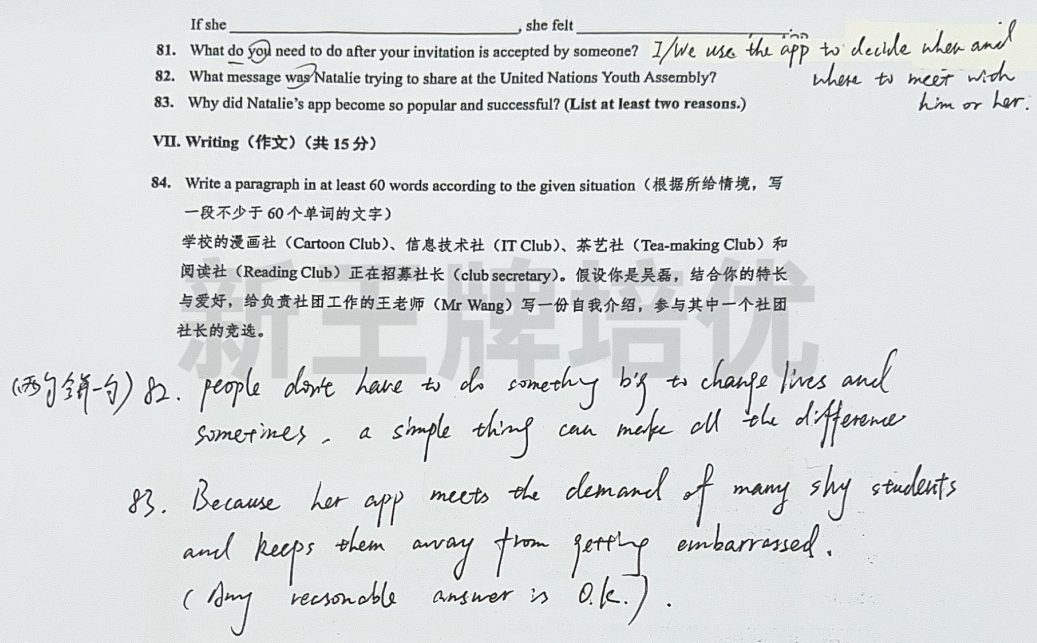 If she ____________, she felt ____________
81. What do you need to do after your invitation is accepted by someone? I/We use the app to decide when and
where to meet with
him or her.
82. What message was Natalie trying to share at the United Nations Youth Assembly?
83. Why did Natalie's app become so popular and successful? (List at least two reasons.)
VII. Writing (作文) (共 15 分)
84. Write a paragraph in at least 60 words according to the given situation (根据所给情境，写
一段不少于 60 个单词的文字)
学校的漫画社 (Cartoon Club)、信息技术社 (IT Club)、茶艺社 (Tea-making Club) 和
阅读社 (Reading Club) 正在招募社长 (club secretary)。假设你是吴磊，结合你的特长
与爱好，给负责社团工作的王老师 (Mr Wang) 写一份自我介绍，参与其中一个社团
社长的竞选。
新王牌培优
(两句拼一句) 82. people don't have to do something big to change lives and
sometimes, a simple thing can make all the difference
83. Because her app meets the demand of many shy students
and keeps them away from getting embarrassed.
(Any reasonable answer is O.K.).